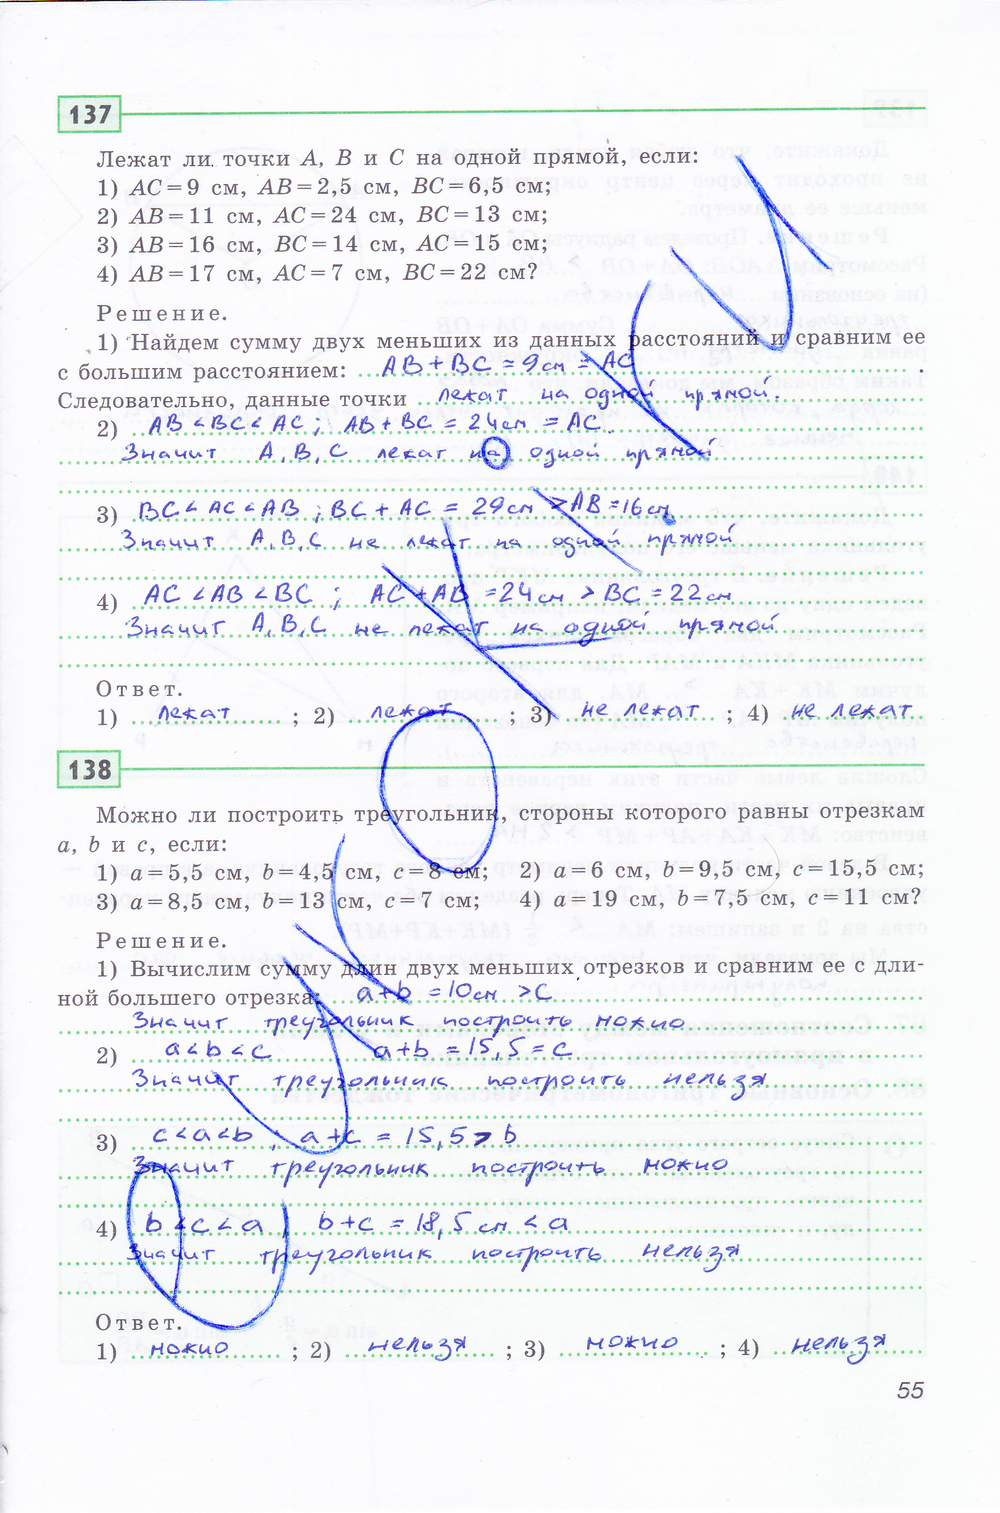 137
Лежат ли точки A, B и C на одной прямой, если:
1) AC = 9 см, AB = 2,5 см, BC = 6,5 см;
2) AB = 11 см, AC = 24 см, BC = 13 см;
3) AB = 16 см, BC = 14 см, AC = 15 см;
4) AB = 17 см, AC = 7 см, BC = 22 см?
Решение.
1) Найдем сумму двух меньших из данных расстояний и сравним ее
с большим расстоянием: AB + BC = 9 см = AC.
Следовательно, данные точки лежат на одной прямой.
2) AB < BC < AC ; AB + BC = 24 см = AC.
Значит A, B, C лежат на одной прямой
3) BC < AC < AB ; BC + AC = 29 см > AB = 16 см
Значит A, B, C не лежат на одной прямой
4) AC < AB < BC ; AC + AB = 24 см > BC = 22 см
Значит A, B, C не лежат на одной прямой
Ответ.
1) лежат ; 2) лежат ; 3) не лежат ; 4) не лежат
138
Можно ли построить треугольник, стороны которого равны отрезкам
a, b и c, если:
1) a = 5,5 см, b = 4,5 см, c = 8 см; 2) a = 6 см, b = 9,5 см, c = 15,5 см;
3) a = 8,5 см, b = 13 см, c = 7 см; 4) a = 19 см, b = 7,5 см, c = 11 см?
Решение.
1) Вычислим сумму длин двух меньших отрезков и сравним ее с дли-
ной большего отрезка: a + b = 10 см > c
Значит треугольник построить можно
2) a < b < c a + b = 15,5 = c
Значит треугольник построить нельзя
3) c < a < b ; a + c = 15,5 > b
Значит треугольник построить можно
4) b < c < a ; b + c = 18,5 см < a
Значит треугольник построить нельзя
Ответ.
1) можно ; 2) нельзя ; 3) можно ; 4) нельзя
55